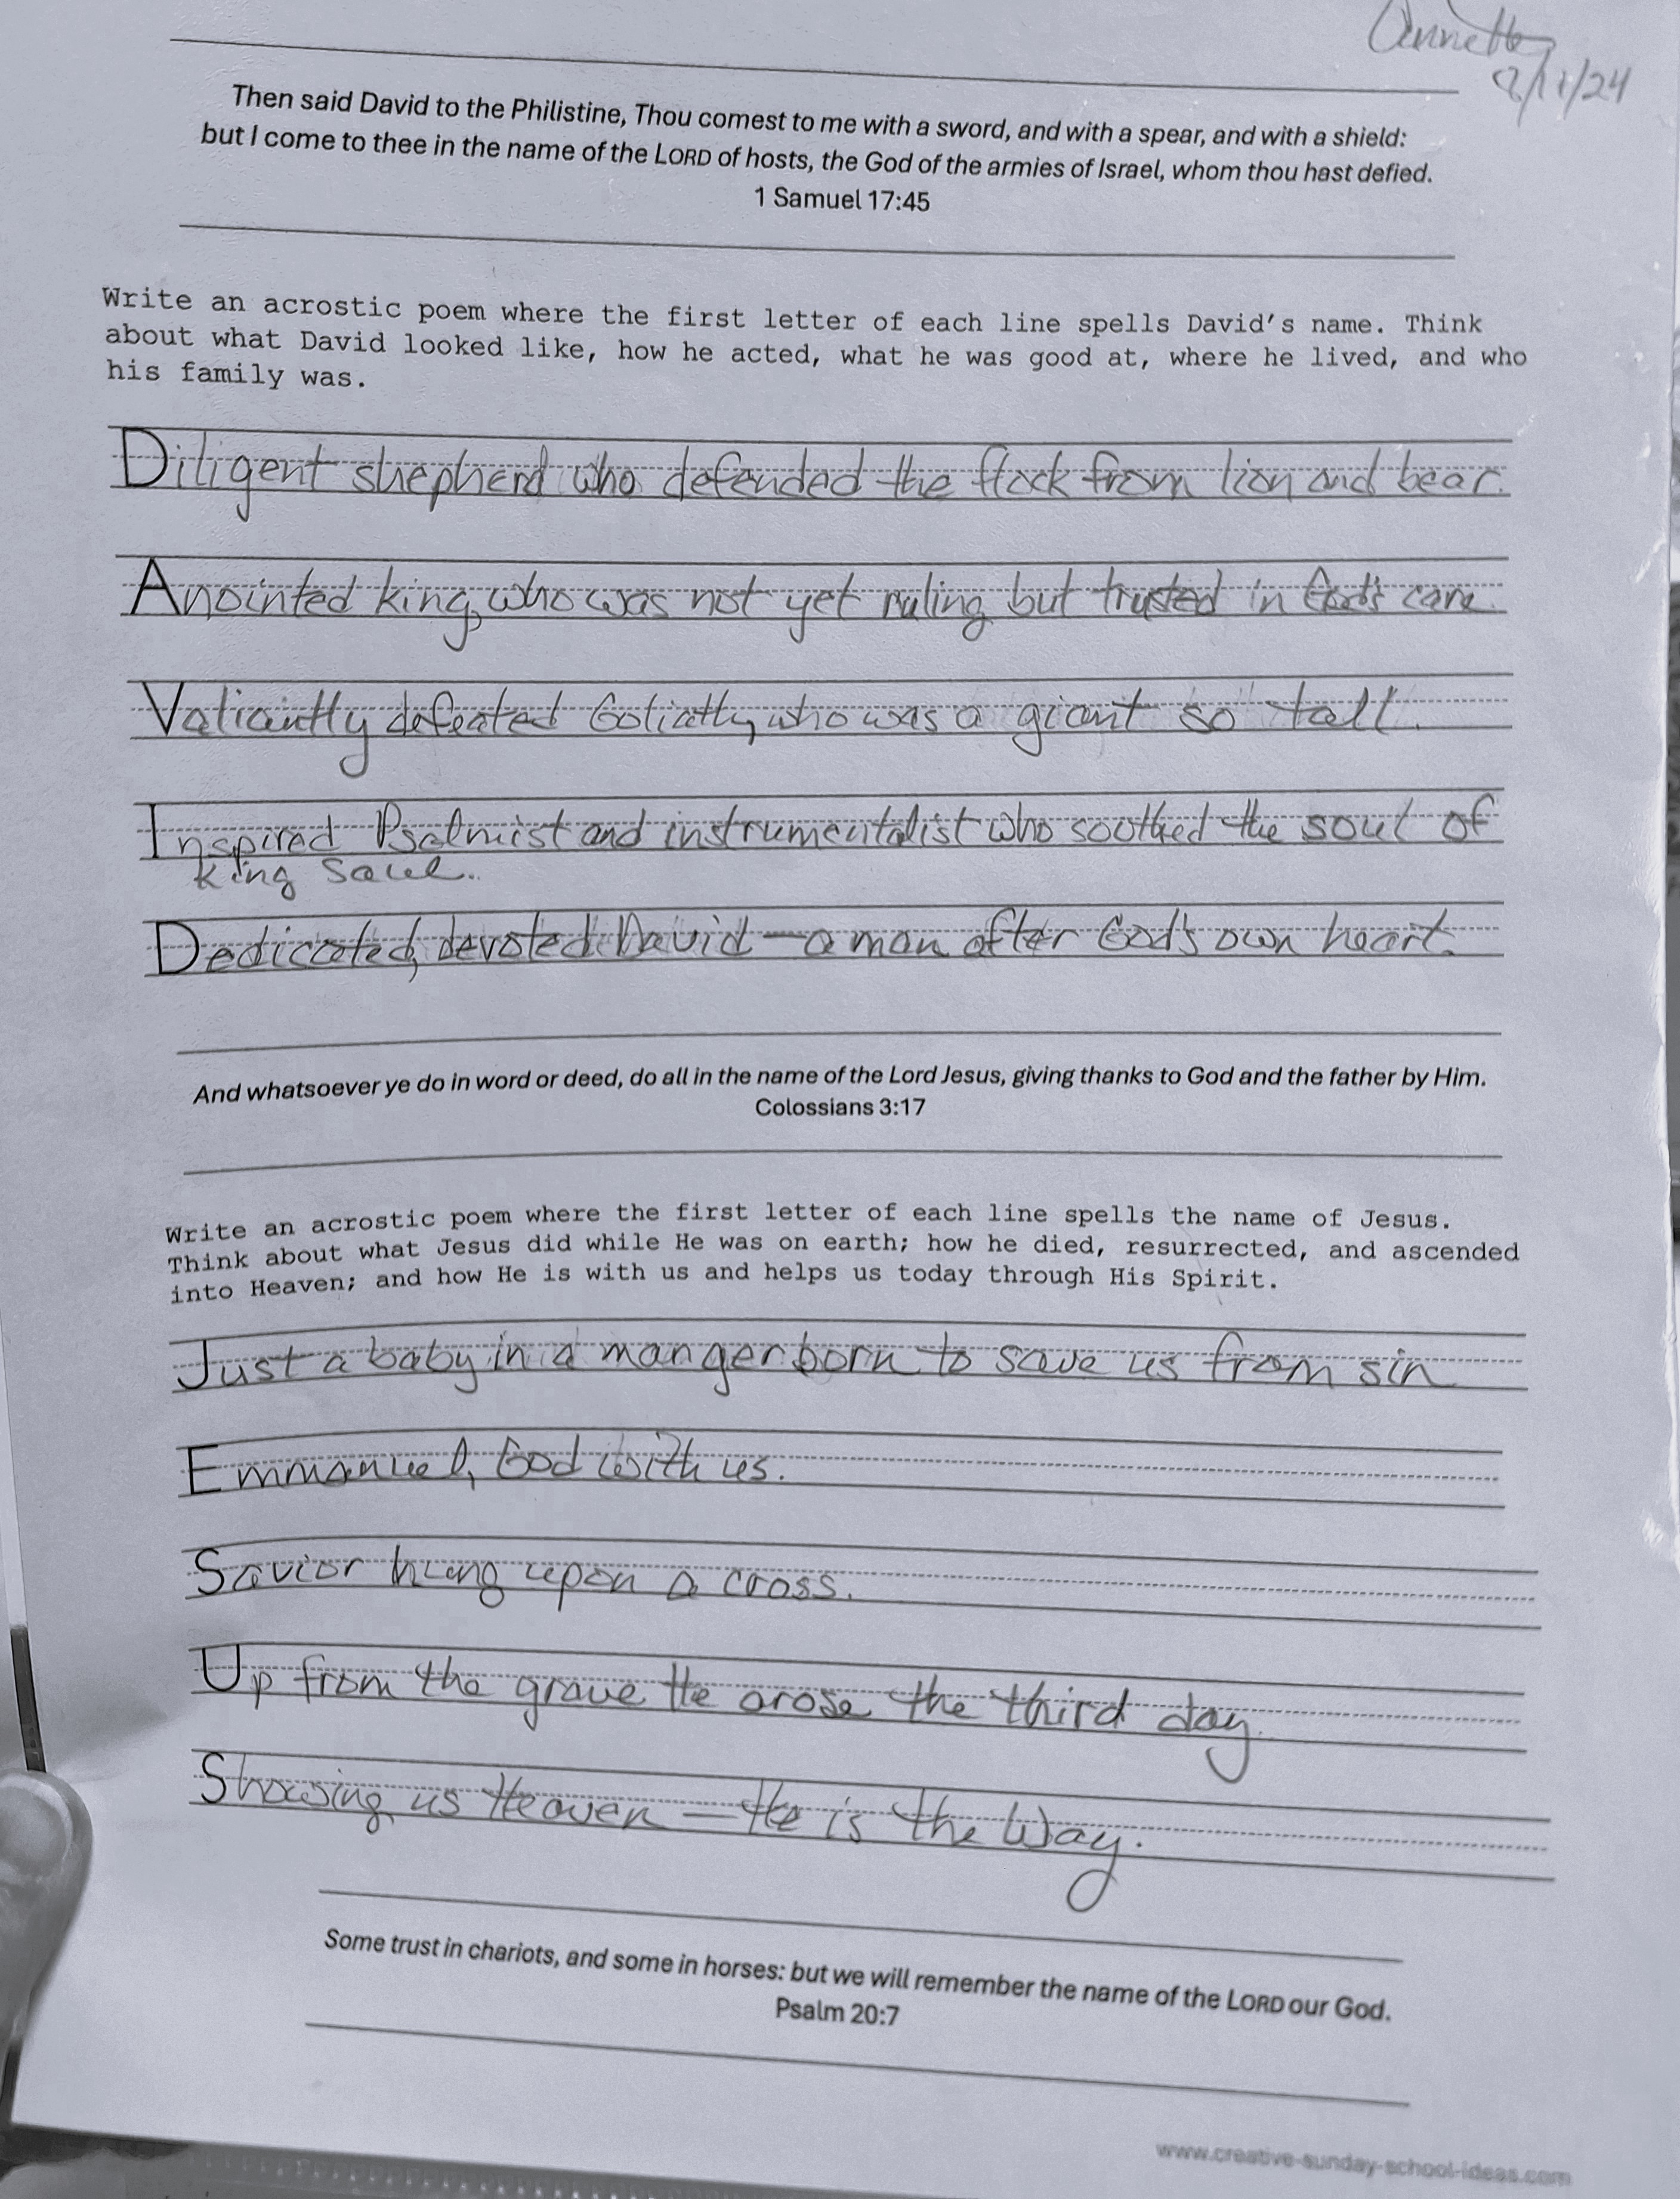 Annette
8/11/24
Then said David to the Philistine, Thou comest to me with a sword, and with a spear, and with a shield:
but I come to thee in the name of the LORD of hosts, the God of the armies of Israel, whom thou hast defied.
1 Samuel 17:45
Write an acrostic poem where the first letter of each line spells David's name. Think
about what David looked like, how he acted, what he was good at, where he lived, and who
his family was.
Diligent shepherd who defended the flock from lion and bear.
Anointed king, who was not yet ruling but trusted in God's care.
Valiantly defeated Goliath, who was a giant so tall.
Inspired Psalmist and instrumentalist who soothed the soul of
King Saul.
Dedicated, devoted David — a man after God's own heart.
And whatsoever ye do in word or deed, do all in the name of the Lord Jesus, giving thanks to God and the father by Him.
Colossians 3:17
Write an acrostic poem where the first letter of each line spells the name of Jesus.
Think about what Jesus did while He was on earth; how he died, resurrected, and ascended
into Heaven; and how He is with us and helps us today through His Spirit.
Just a baby in a manger born to save us from sin
Emmanuel, God with us.
Savior hung upon a cross.
Up from the grave He arose the third day.
Showing us Heaven — He is the Way.
Some trust in chariots, and some in horses: but we will remember the name of the LORD our God.
Psalm 20:7
www.creative-sunday-school-ideas.com